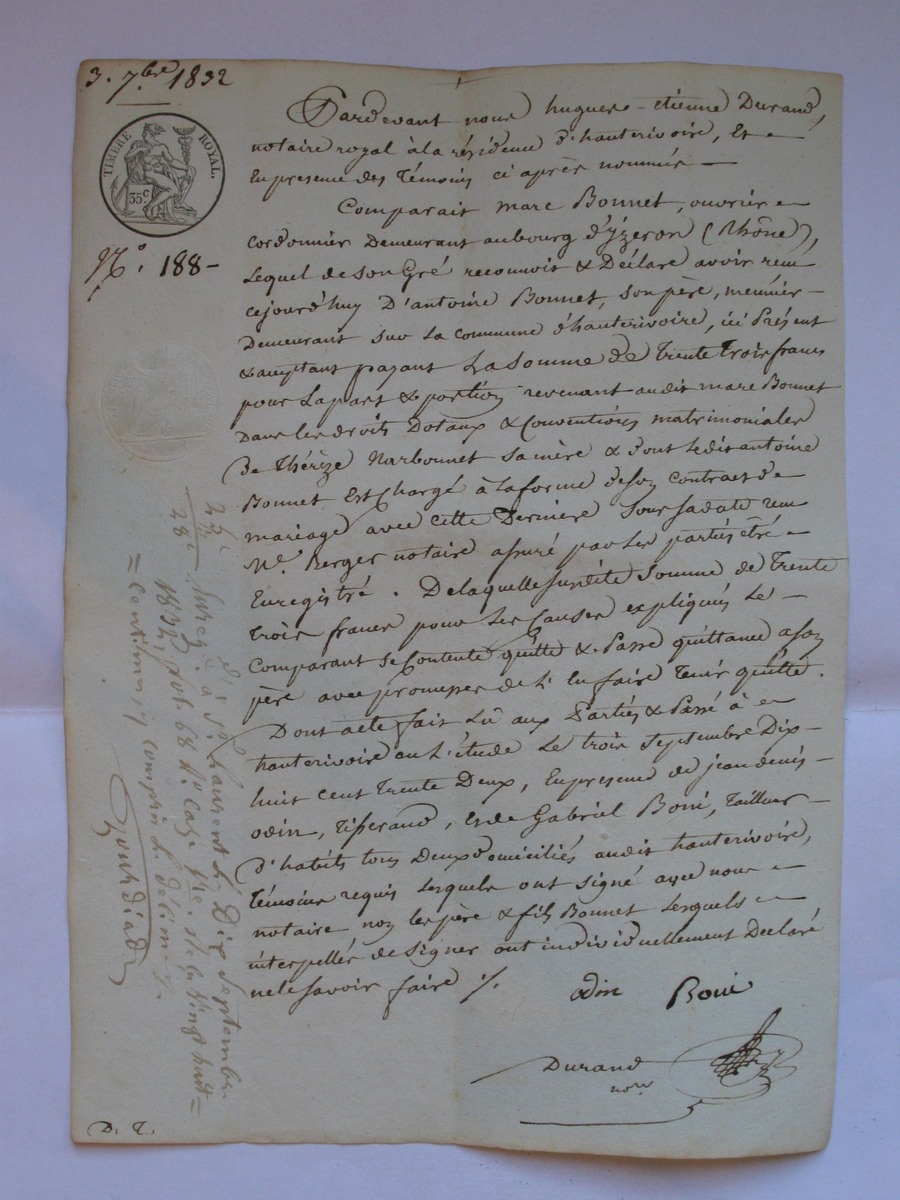 3. 7.bre 1832
TIMBRE ROYAL.
35c
N.o 188 -
Pardevant nous hugues-etienne Durand,
notaire royal à la résidence d'hauterivoire, Et
En presence des Témoins ci après nommés
Comparait marc Bonnet, ouvrier
cordonnier Demeurant au bourg d'yzeron (Rhône),
Lequel de son Gré reconnoit & Déclare avoir reçu
cejourd'huy D'antoine Bonnet, son père, meunier
Demeurant sur la Commune d'hauterivoire, ici Présent
& acceptant payant La somme de Trente trois francs
pour La part & portion revenant audit marc Bonnet
Dans les droits Dotaux & Conventions matrimoniales
De Thérèze Narbonnet sa mère & dont ledit antoine
Bonnet Est Chargé à la forme de son contract de
mariage avec cette Dernière sous sa date reçu
Me. Berger notaire assuré par les parties être
Enregistré. De laquelle susdite somme de Trente
trois francs pour les Causes expliqués Le
comparant se Contente quitte & Passe quittance a son
père avec promesse de L'en faire Tenir quitte.
Dont acte fait Lû aux Parties & Passé à
hauterivoire en L'étude Le trois septembre Dix
huit cent Trente Deux, En presence de jean denis
odin, Tisserand, et de Gabriel Boni, Tailleur
D'habits tous Deux domiciliés audit hauterivoire,
Témoins requis lesquels ont signé avec nous
notaire non les père & fils Bonnet Lesquels
interpellés de signer ont individuellement Declaré
ne le savoir faire ./.
odin Boni
Durand
nore
D. T.
28c
Enreg.é à St Laurent le Dix septembre
1832, fol. 68 Ro case 1re. Reçu Vingt huit
= Centimes y compris le décime ./.